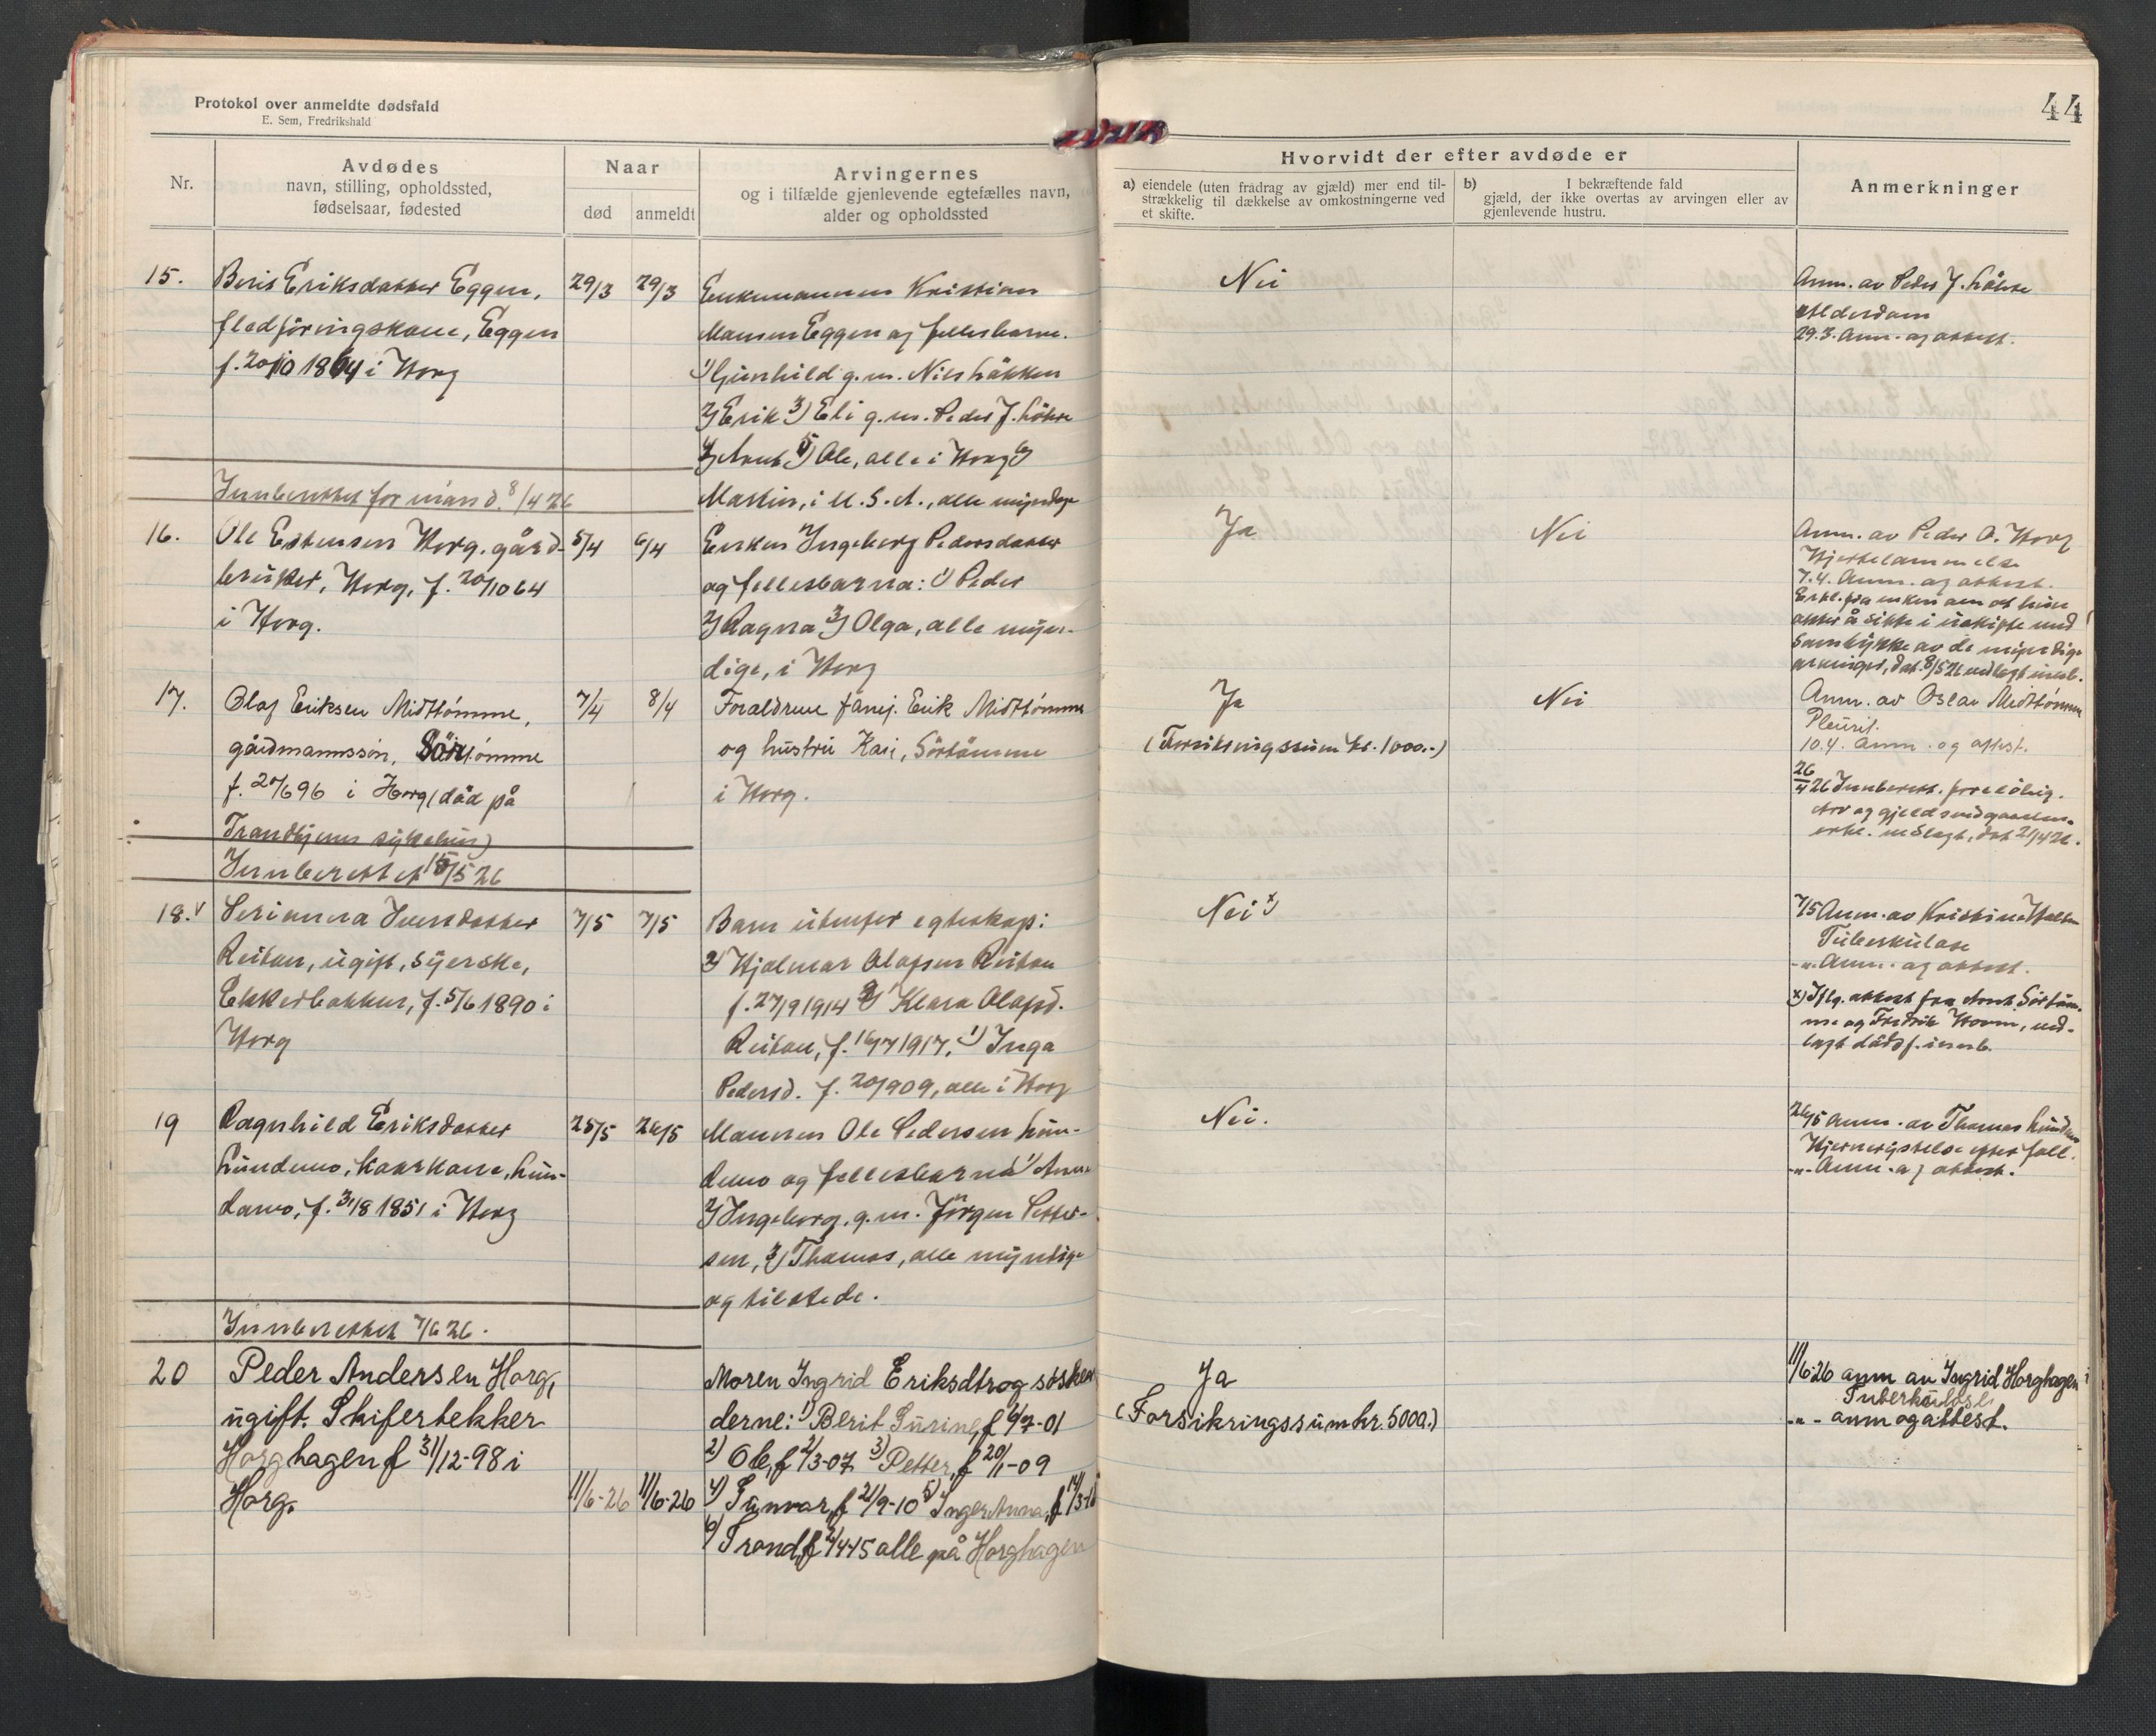 Protokol over anmeldte dødsfald
E. Sem, Fredrikshald
44
Nr.
Avdødes
navn, stilling, opholdssted,
fødselsaar, fødested
Naar
død
anmeldt
Arvingernes
og i tilfælde gjenlevende egtefælles navn,
alder og opholdssted
Hvorvidt der efter avdøde er
a) eiendele (uten fradrag av gjæld) mer end til-
strækkelig til dækkelse av omkostningerne ved
et skifte.
b) I bekræftende fald
gjæld, der ikke overtas av arvingen eller av
gjenlevende hustru.
Anmerkninger
15.
Berit Eriksdatter Eggen,
flødføringskone, Eggen
f. 20/10 1864 i Horg
29/3
29/3
Enkemannen Kristian
Eggen og fellesbarna.
1) Gunhild g.m. Nils Løkken
2) Erik 3) Eli g.m. Peder J. Løhre
4) Arnt 5) Ole, alle i Horg 6)
Martin, i U.S.A., alle myndige
Nei
Anm. av Peder J. Løhre
Alderdom
29.3. Anm. og attest.
Innberettet for mars d. 8/4 26
16.
Ole Estensen Horg, gård-
bruker, Horg, f. 20/10 64
i Horg.
5/4
6/4
Enken Ingeborg Pedersdatter
og fellesbarna: 1) Peder
2) Ragna 3) Olga, alle myn-
dige, i Horg
Ja
Nei
Anm. av Peder O. Horg
Hjertelammelse
7.4. Anm. og attest.
Erkl. fra enken om at hun
akter å sitte i uskifte med
samtykke av de myndige
arvinger, dat. 8/5 26 vedlagt innb.
17.
Olaf Eriksen Midttømme,
gårdmannssøn, Sørtømme
f. 27/6 96 i Horg (død på
Trondhjems sykehus)
7/4
8/4
Foreldrene Erik Midttømme
og hustru Kari, Sørtømme
i Horg.
Ja
(Forsikringssum kr. 1000.-)
Nei
Anm. av Oslav Midttømme
Pleurit.
10.4. Anm. og attest.
26/4 26 Innberett. foreløbig.
Arv og gjeldsvedgaaelses-
erkl. vedlagt, dat 21/4 26.
Innberettet 15/5 26
18. v
Serianna Iversdatter
Reitan, ugift, syerske,
Ekkerbakken, f. 5/6 1890 i
Horg
7/5
7/5
Barn utenfor egteskap:
3) Hjalmar Olafsen Reitan
f. 27/9 1914 2) Klara Olafsd.
Reitan, f. 16/7 1917, 1) Inga
Pedersd. f. 1909, alle i Horg
Nei x)
7/5 Anm. av Kristine
Tuberkulose
-"- Anm. og attest.
x) Iflg. attest fra Arnt Sørtøm-
me og Fredrik Hovin, ved-
lagt dødsf. innb.
19
Ragnhild Eriksdatter
Lundemo, kårkone, Lun-
damo, f. 31/8 1851 i Horg
25/5
26/5
Mannen Ole Pedersen Lun-
demo og fellesbarna 1) Arne
2) Ingeborg, g.m. Jørgen Petter-
sen, 3) Thomas, alle myndige
og tilstede.
Nei.
26/5 Anm. av Thomas Lundemo
Hjernerystelse efter fall.
-"- Anm. og attest.
Innberettet 7/6 26.
20
Peder Andersen Horg,
ugift. Skifertekker
Horghagen f 31/12-98 i
Horg.
11/6-26
11/6-26
Moren Ingrid Eriksdtr og søsken
derne: 1) Berit Gurine, f 6/7-01
2) Ole, f 2/3-07 3) Petter, f 20/1-09
4) Gunvar, f 21/9-10 5) Inger Anna, f
6) Trond, f 4-15 alle på Horghagen
Ja
(Forsikringssum kr. 5000.)
11/6-26 anm av Ingrid Horghagen
Tuberkulose
-"- anm og attest.